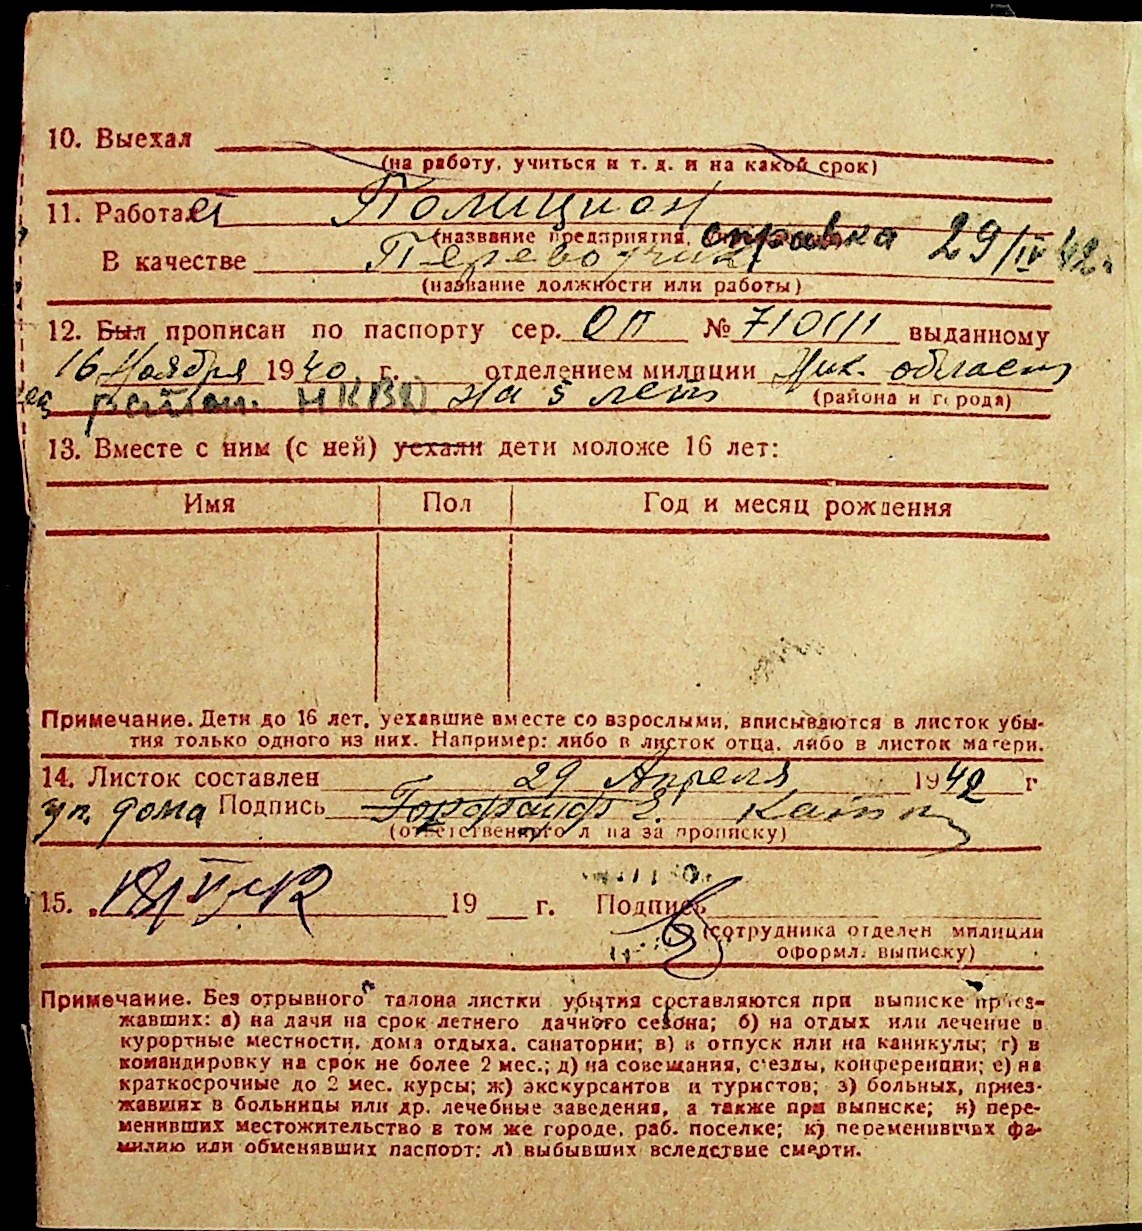 10. Выехал
(на работу, учиться и т. д. и на какой срок)
11. Работает Полицион
(название предприятия, справка 29/IV 42.
В качестве Переводчик
(название должности или работы)
12. Был прописан по паспорту сер. ОП № 710111 выданному
16 Ноября 1940 г. отделением милиции Ник. област
район. НКВД. на 5 лет (района и города)
13. Вместе с ним (с ней) уехали дети моложе 16 лет:
Имя Пол Год и месяц рождения
Примечание. Дети до 16 лет, уехавшие вместе со взрослыми, вписываются в листок убы-
тия только одного из них. Например: либо в листок отца, либо в листок матери.
14. Листок составлен 29 Апреля 1942 г
уп. дома Подпись
(ответственного л па за прописку)
15. 19 г. Подпись
(сотрудника отделен милиции
оформл. выписку)
Примечание. Без отрывного талона листки убытия составляются при выписке приез-
жавших: а) на дачи на срок летнего дачного сезона; б) на отдых или лечение в
курортные местности, дома отдыха, санатории; в) в отпуск или на каникулы; г) в
командировку на срок не более 2 мес.; д) на совещания, с'езды, конференции; е) на
краткосрочные до 2 мес. курсы; ж) экскурсантов и туристов; з) больных, приез-
жавших в больницы или др. лечебные заведения, а также при выписке; и) пере-
менивших местожительство в том же городе, раб. поселке; к) переменивших фа-
милию или обменявших паспорт; л) выбывших вследствие смерти.